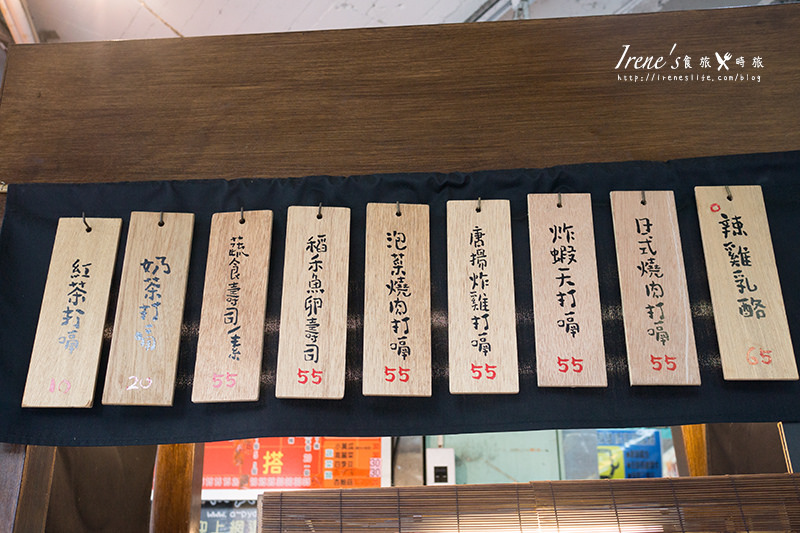 Irene's食旅時旅
http://ireneslife.com/blog
紅茶打嗝
10
奶茶打嗝
20
蔬食壽司/素
55
稻禾魚卵壽司
55
泡菜燒肉打嗝
55
唐揚炸雞打嗝
55
炸蝦天打嗝
55
日式燒肉打嗝
55
辣雞乳酪
65
搭